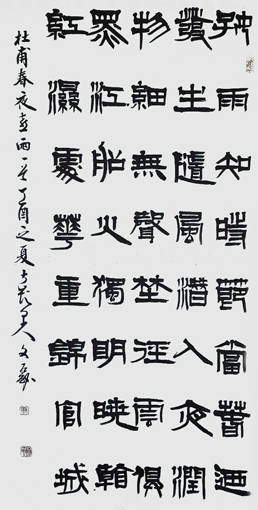 好雨知時節當春迺
發生隨風潛入夜潤
物細無聲埜徑雲俱
黑江船火獨明曉看
紅濕處華重錦官城
杜甫春夜喜雨一首丁酉之夏